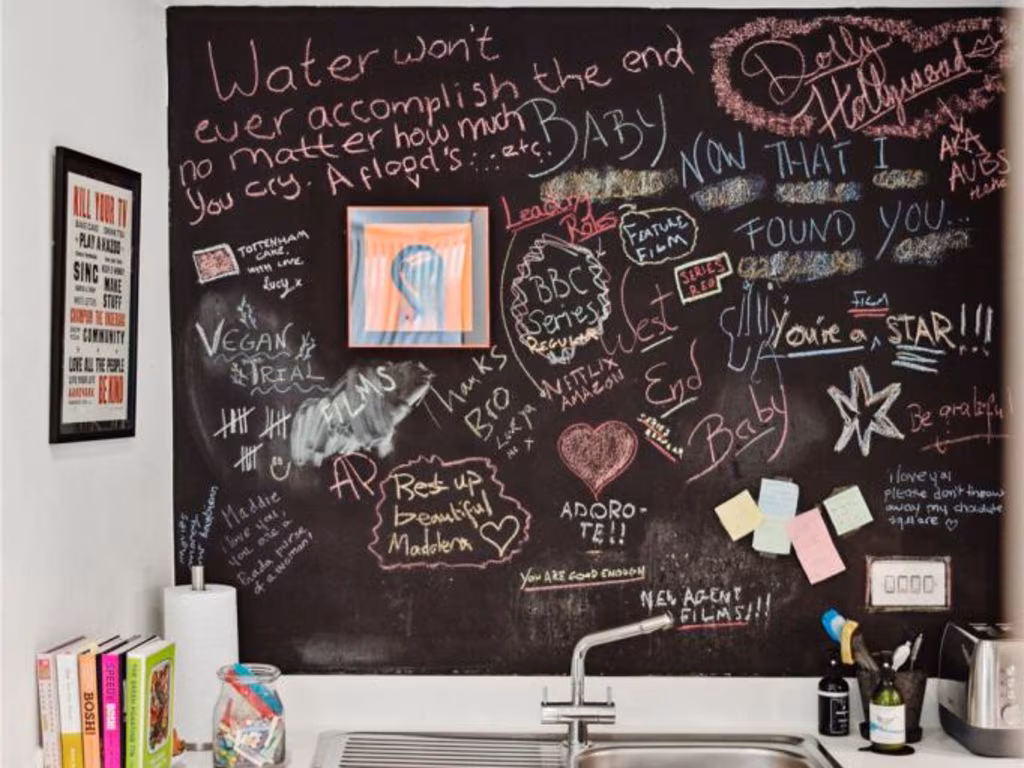 Water won't
ever accomplish the end
no matter how much
you cry. A flood's... etc.
BABY
NOW THAT I
FOUND YOU...
Dolly
Hollywood
AKA
AUBS
KILL YOUR TV
PLAY A KAZOO
SING
MAKE
STUFF
COMMUNITY
LOVE ALL THE PEOPLE
BE KIND
TOTTENHAM
CAKE.
WITH LOVE.
Lucy x
Leading
Roles
FEATURE
FILM
SERIES
REG
BBC
Series
REGULAR
NETFLIX
AMAZON
West
End
Baby
FILM
You're a STAR!!!
VEGAN
TRIAL
FILMS
Thanks
BRO
Be grateful
AP
Rest up
beautiful
Maddalena
ADORO-
TE!!
i love you
please don't throw
away my chocolate
square
Maddie
I love you,
you are a
woman!
YOU ARE GOOD ENOUGH
NEW AGENT
FILMS!!!
BOSH!
SPEEDY BOSH!